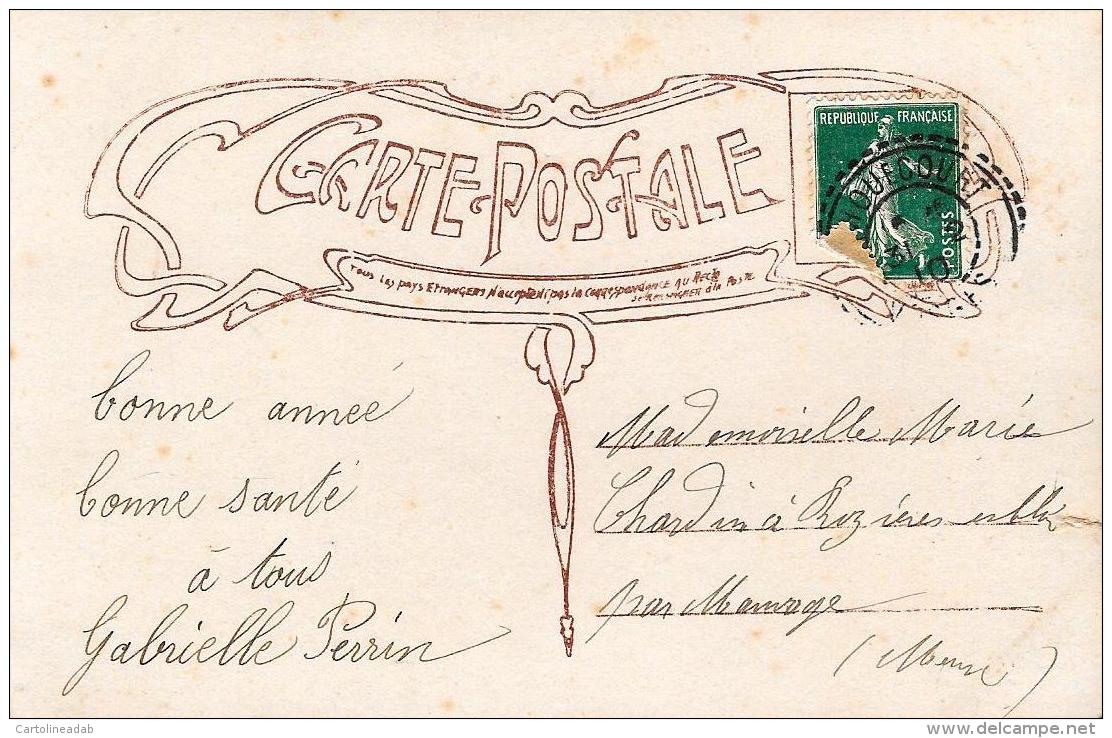 CARTE POSTALE
REPUBLIQUE FRANÇAISE
POSTES
31 12
10
TOUS LES PAYS ETRANGERS N'acceptent pas la CORRESPONDANCE AU RECTO
SE RENSEIGNER à la POSTE
bonne année
bonne santé
à tous
Gabrielle Perrin
Mademoiselle Marie
Chardin à Rozières
par Mauvage
(Meuse)
Cartolineadab
www.delcampe.net